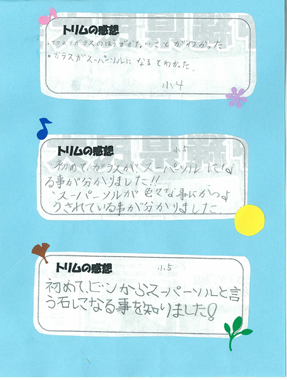 トリムの感想
ガラスがスーパーソルになるとわかった
小4
トリムの感想
小5
初めて、ガラスが、スーパーソルてな
る事が分かりました!!
スーパーソルが色々な事にかつよ
うされている事が分かりました
トリムの感想
小5
初めて、ビンからスーパーソルと言
う石になる事を知りました!